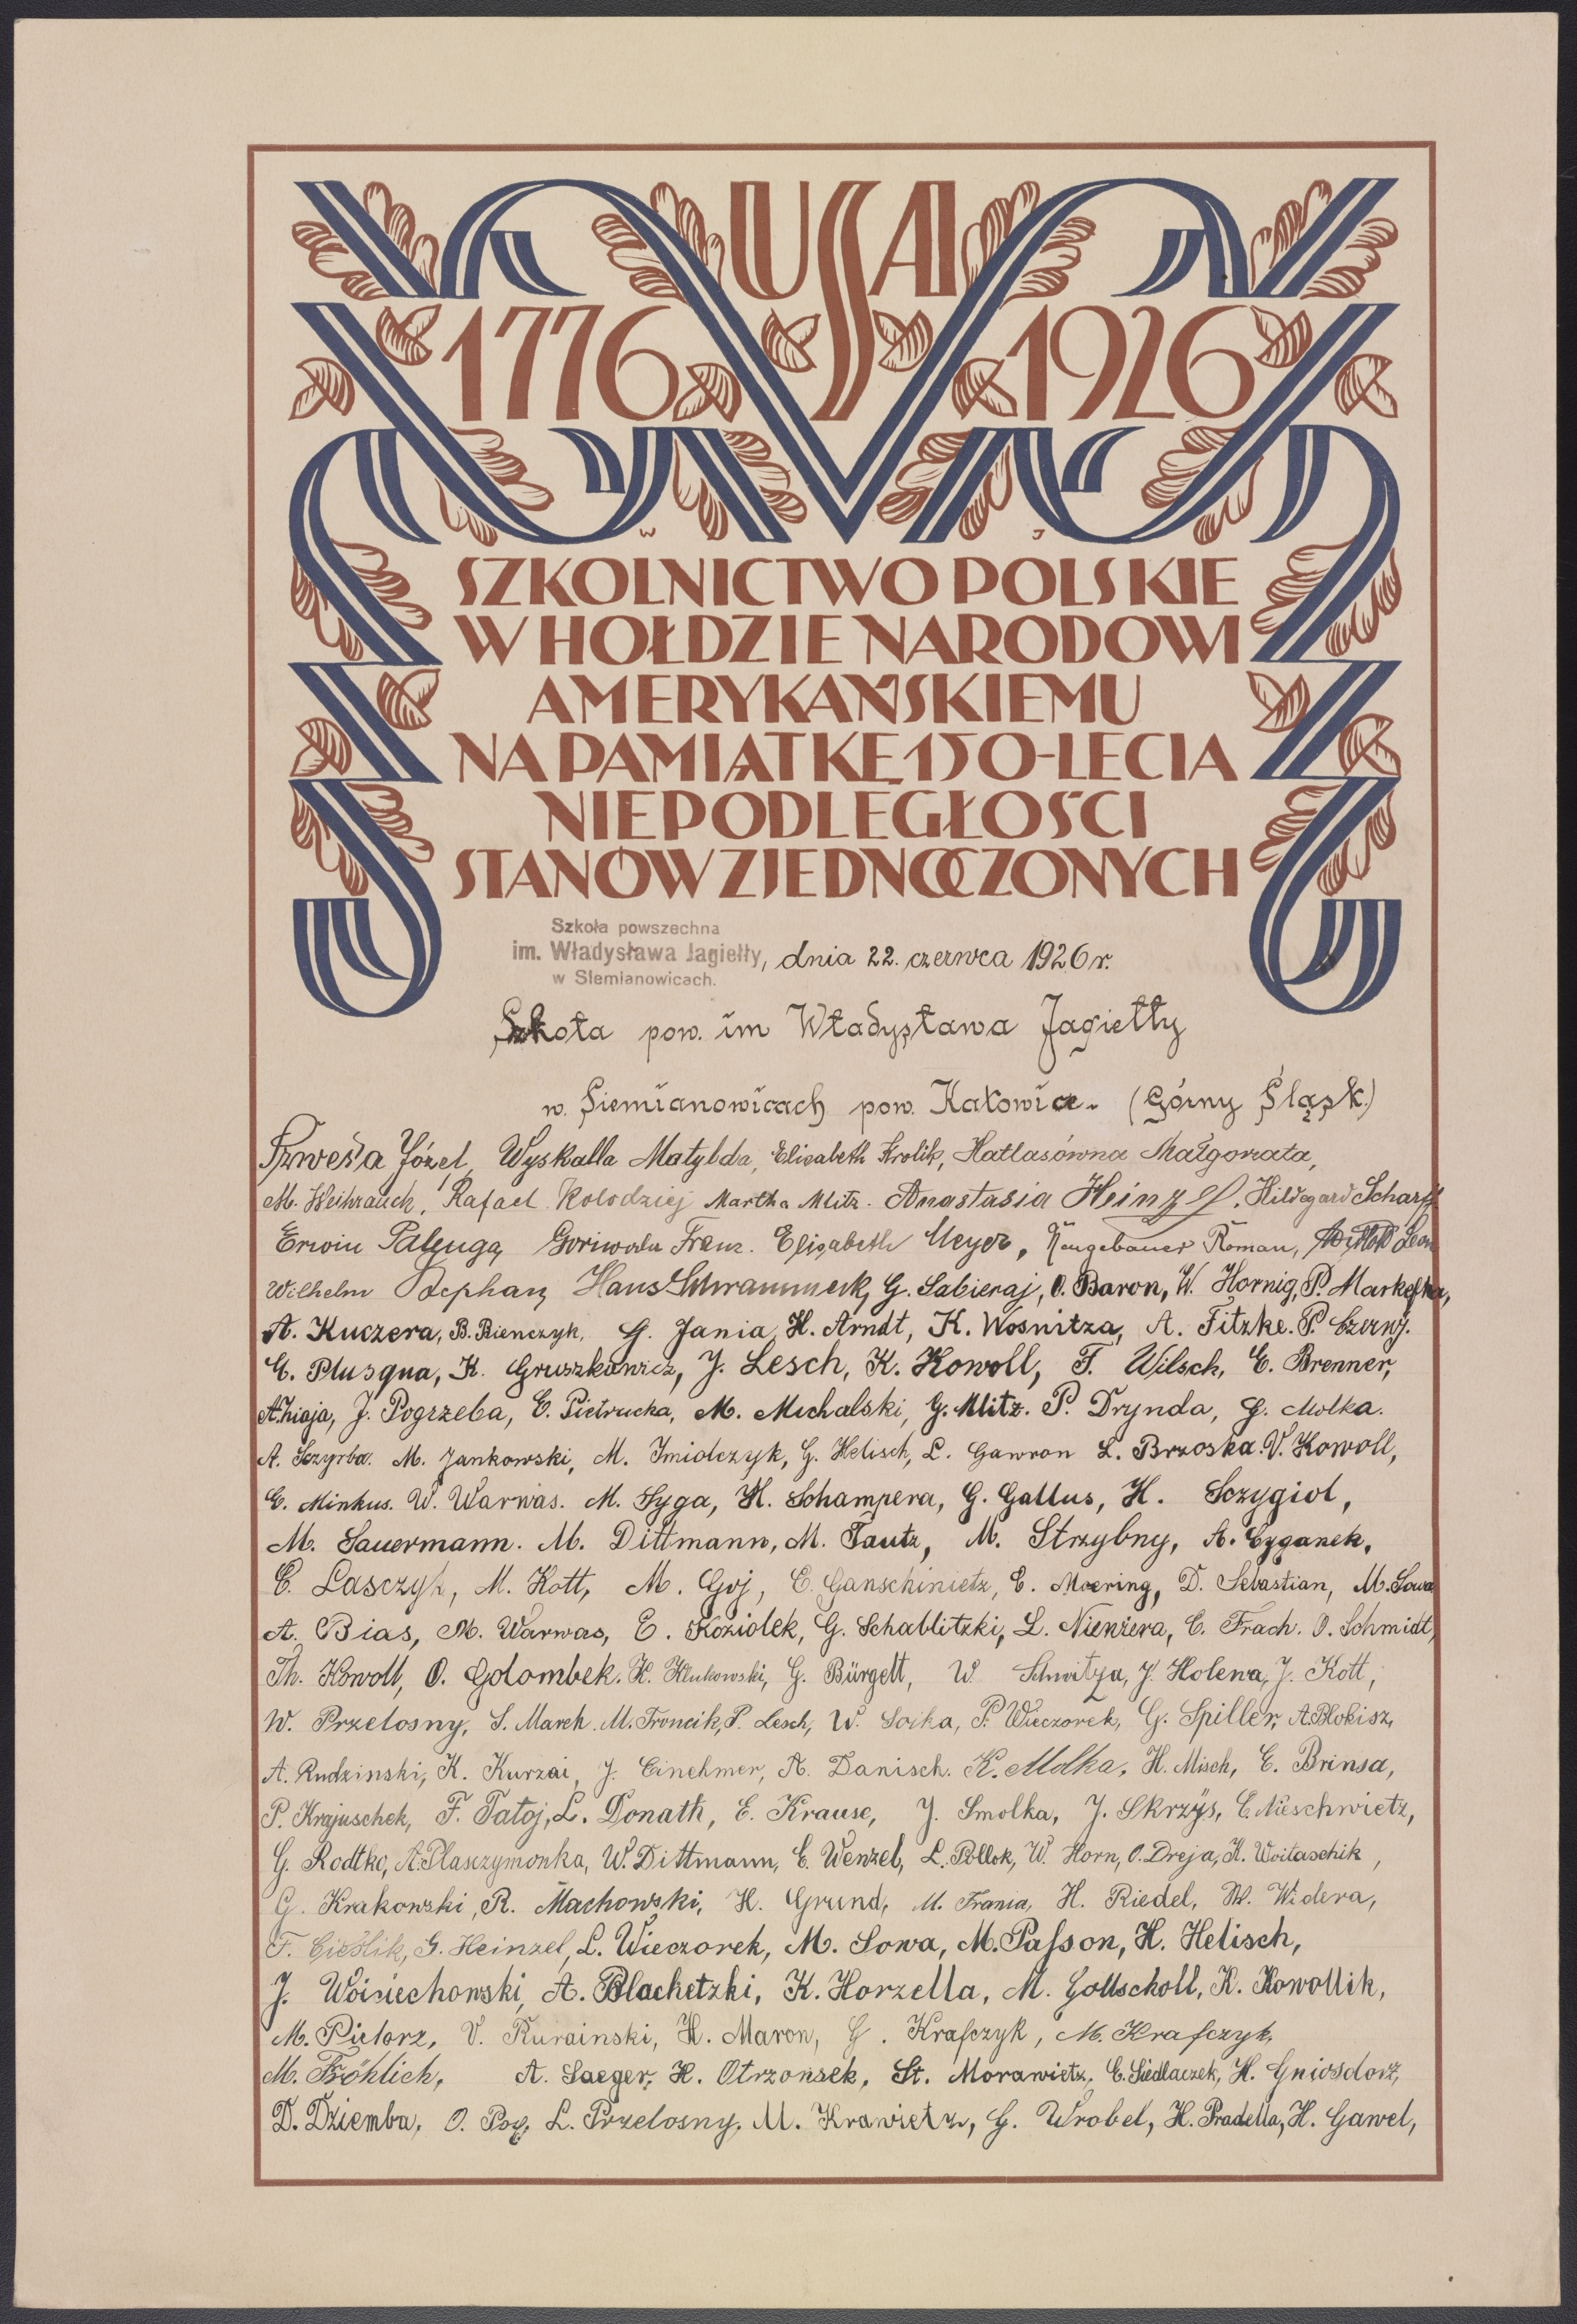 USA
1776 1926
W J
SZKOLNICTWO POLSKIE
W HOŁDZIE NARODOWI
AMERYKAŃSKIEMU
NA PAMIĄTKĘ 150-LECIA
NIEPODLEGŁOŚCI
STANÓW ZJEDNOCZONYCH
Szkoła powszechna
im. Władysława Jagiełły, dnia 22. czerwca 1926 r.
w Siemianowicach.
Szkoła pow. im Władysława Jagiełły
w. Siemianowicach pow. Katowice. (Górny Śląsk.)
Józef, Wyskalla Matylda, Elisabeth Krolik, Hatlasówna Małgorzata,
M. Weihrauch, Rafael Kolodziej Martha Mlitz. Anastasia Heinzel, Hildegard Scharff
Erwin Palenga Franz. Elisabeth Meyer, Neugebauer Roman, Leon
Wilhelm Hans Schrammeck, G. Sabieraj, O. Baron, W. Hornig, P. Markefka,
A. Kuczera, B. Bienczyk, G. Jania, H. Arndt, K. Wosnitza, A. Fitzke. P. Czerny.
E. Plusqua, K. Gruszkiewicz, J. Lesch, K. Kowoll, F. Wilsch, E. Brenner,
J. Pogrzeba, E. Pietrucka, M. Michalski, G. Mlitz. P. Drynda, G. Molka.
A. Sczyrba. M. Jankowski, M. Imiolczyk, G. Helisch, L. Gawron L. Brzoska. V. Kowoll,
E. Minkus. W. Warwas. M. Syga, H. Schampera, G. Gallus, H. Sczygiol,
M. Sauermann. M. Dittmann, M. Tautz, M. Strzybny, A. Cyganek,
E. Lasczyk, M. Kott, M. Goj, E. Ganschinietz, E. Moering, D. Sebastian, M. Sowa
A. Bias, M. Warwas, E. Koziolek, G. Schablitzki, L. Nienżera, E. Frach. O. Schmidt,
Th. Kowoll, O. Golombek. H. Klukowski, G. Bürgelt, W. J. Holewa, J. Kott,
W. Przelosny, S. Marek. M. Froncik, P. Lesch, W. Soika, P. Wieczorek, G. Spiller, A. Blokisz,
A. Rudzinski, K. Kurzai, J. Cinehmer, A. Danisch. K. Molka, H. Misch, E. Brinsa,
P. Krajuschek, F. Tatoj, L. Donath, E. Krause, J. Smolka, J. Skrzÿs, E. Mieschwietz,
G. Rodtko, A. Plasczymonka, W. Dittmann, E. Wenzel, L. Pollok, W. Horn, O. Dreja, K. Woitaschik,
G. Krakowski, R. Machowski, H. Grund, M. Frania, H. Riedel, M. Widera,
F. Cieślik, G. Heinzel, L. Wieczorek, M. Sowa, M. Paſson, H. Helisch,
J. Woiciechowski, A. Blachetzki, K. Horzella, M. Gottscholl, K. Kowollik,
M. Pietorz, V. Rurainski, H. Maron, G. Kraſczyk, M. Kraſczyk,
M. Fröhlich, A. Saeger, H. Otrzonsek, St. Morawietz, E. Siedlaczek, H. Gniosdorz,
D. Dziemba, O. L. Przelosny, M. Krawietz, G. Wrobel, H. Pradella, H. Gawel,